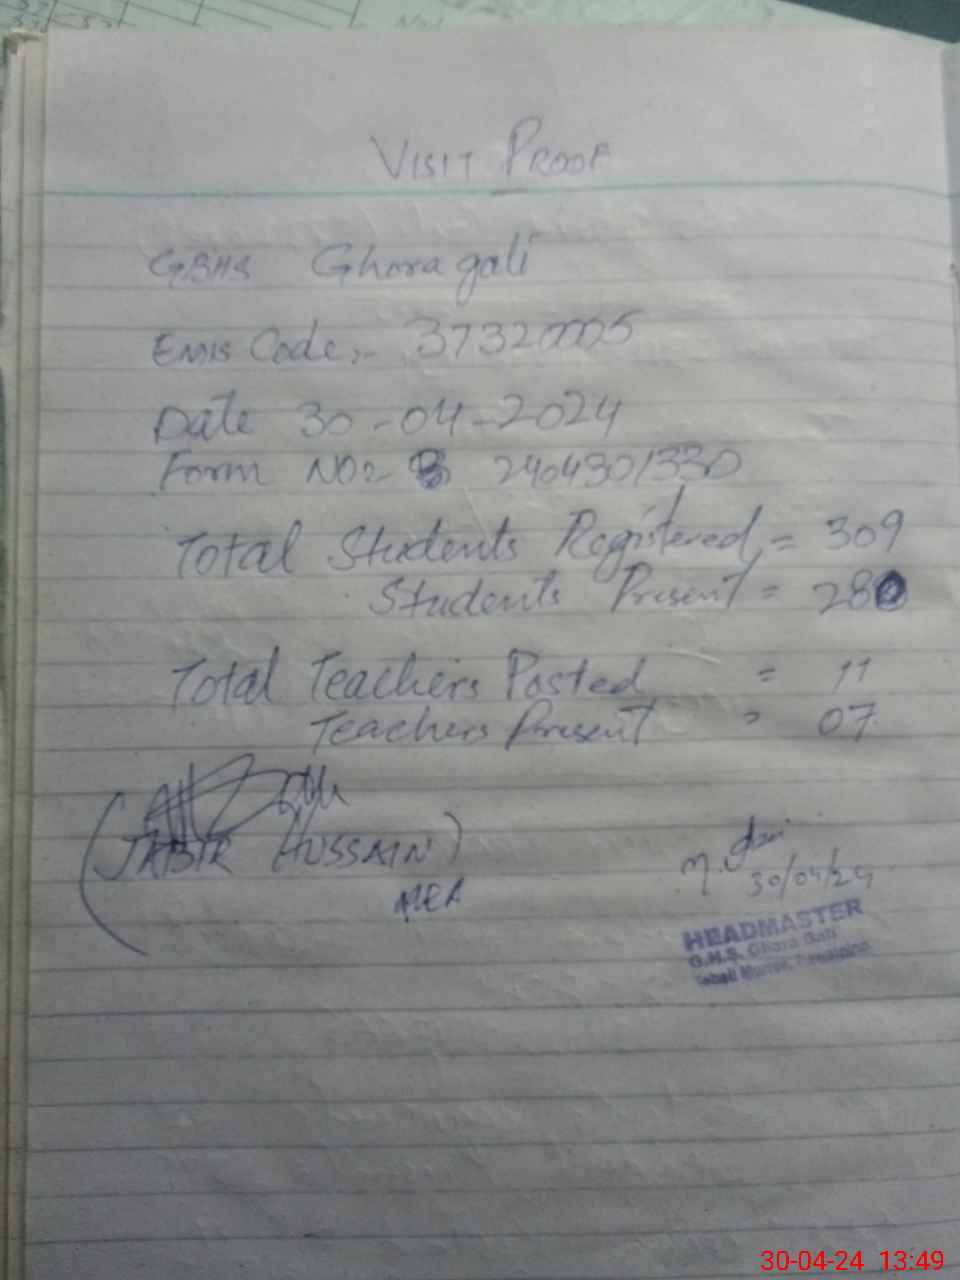 VISIT PROOF
GBHS Ghora gali
EMIS Code:- 37320005
Date 30-04-2024
Form NO:- 2404301330
Total Students Registered = 309
Students Present = 280
Total Teachers Posted = 11
Teachers Present = 07
(JABIR HUSSAIN)
MEA
30/04/24
HEADMASTER
G.H.S. Ghora Gali
30-04-24 13:49